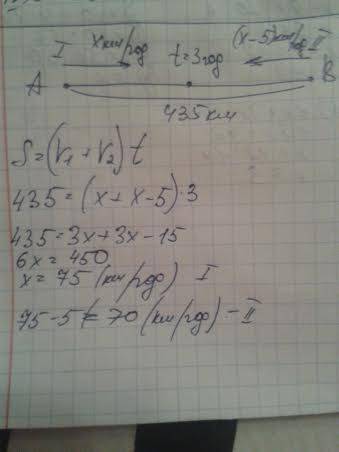 I x км/год t=3 год (x-5) км/год II
A B
435 км
S=(V₁+V₂) t
435=(x+x-5)·3
435=3x+3x-15
6x=450
x=75 (км/год) I
75-5=70 (км/год) - II